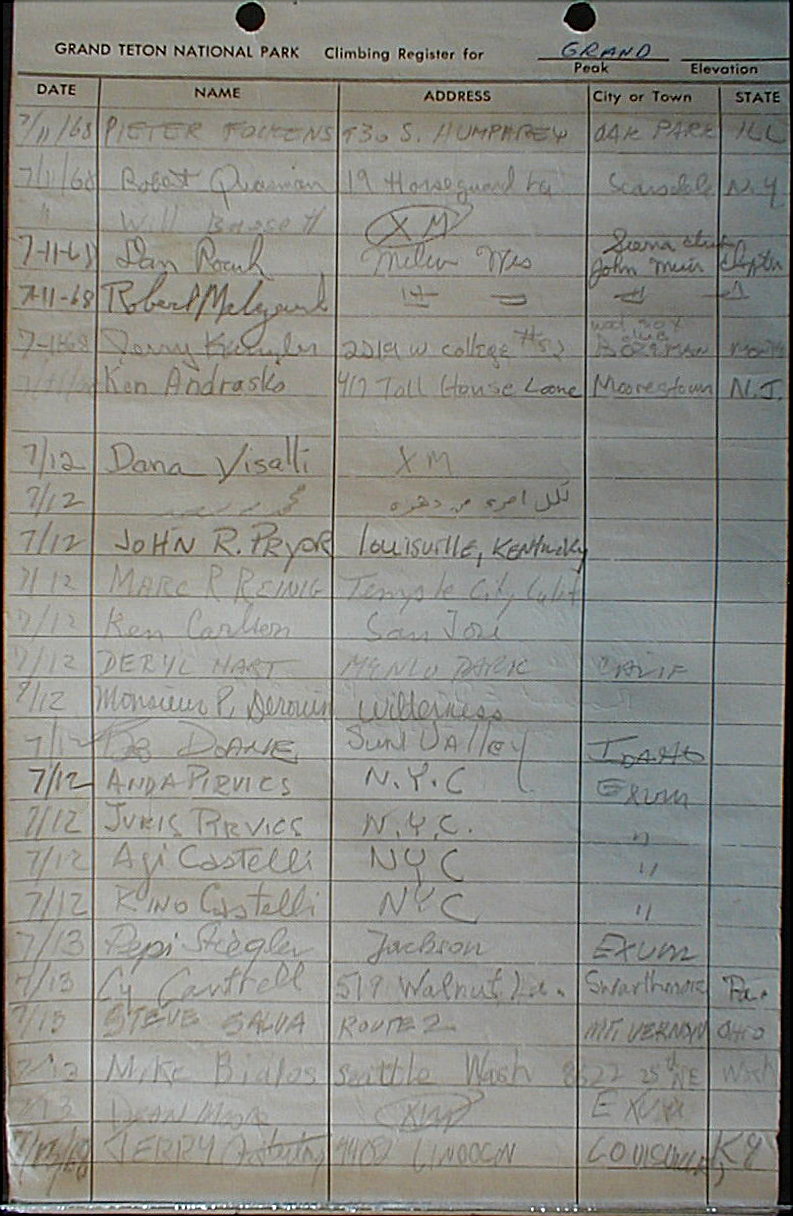 GRAND TETON NATIONAL PARK Climbing Register for GRAND
Peak Elevation
DATE NAME ADDRESS City or Town STATE
7/11/68 PIETER FOCKENS 936 S. HUMPHREY OAK PARK ILL
7/11/68 Robert 19 Horseguard La Scarsdale N.Y
" Will XM
7-11-68 Dan Roach Wis Sierra club John Muir chapter
7-11-68 Robert " " "
7-11-68 Jerry 2019 W College #52 BOZEMAN
Ken Andrasko 417 Toll House Loane Moorestown N.J.
7/12 Dana Visalli XM
7/12 لكل امرئ من دهره
7/12 JOHN R. PRYOR Louisville, KENTucky
7/12 MARC R REINIG Temple City Calif
7/12 Ken Carlson San Jose
7/12 DERYL HART MENLO PARK CALIF
7/12 Monsieur P. Derouin Wilderness
7/12 Bob DOANE SUN VAlley IDAHO
7/12 ANDA PIRVICS N.Y.C EXUM
7/12 JURIS PIRVICS N.Y.C. "
7/12 Agi Castelli NYC "
7/12 RINO Castelli NYC "
7/13 Pepi Stiegler Jackson EXUM
7/13 Cy Cantrell 519 Walnut La. Swarthmore Pa.
7/13 STEVE SALVA ROUTE 2 MT. VERNON OHIO
7/13 Mike Bialos Seattle Wash 8522 25th NE Wash
7/13 DEAN MOORE XM EXUM
7/13/68 JERRY LINDOLN LOUISVILLE, KY